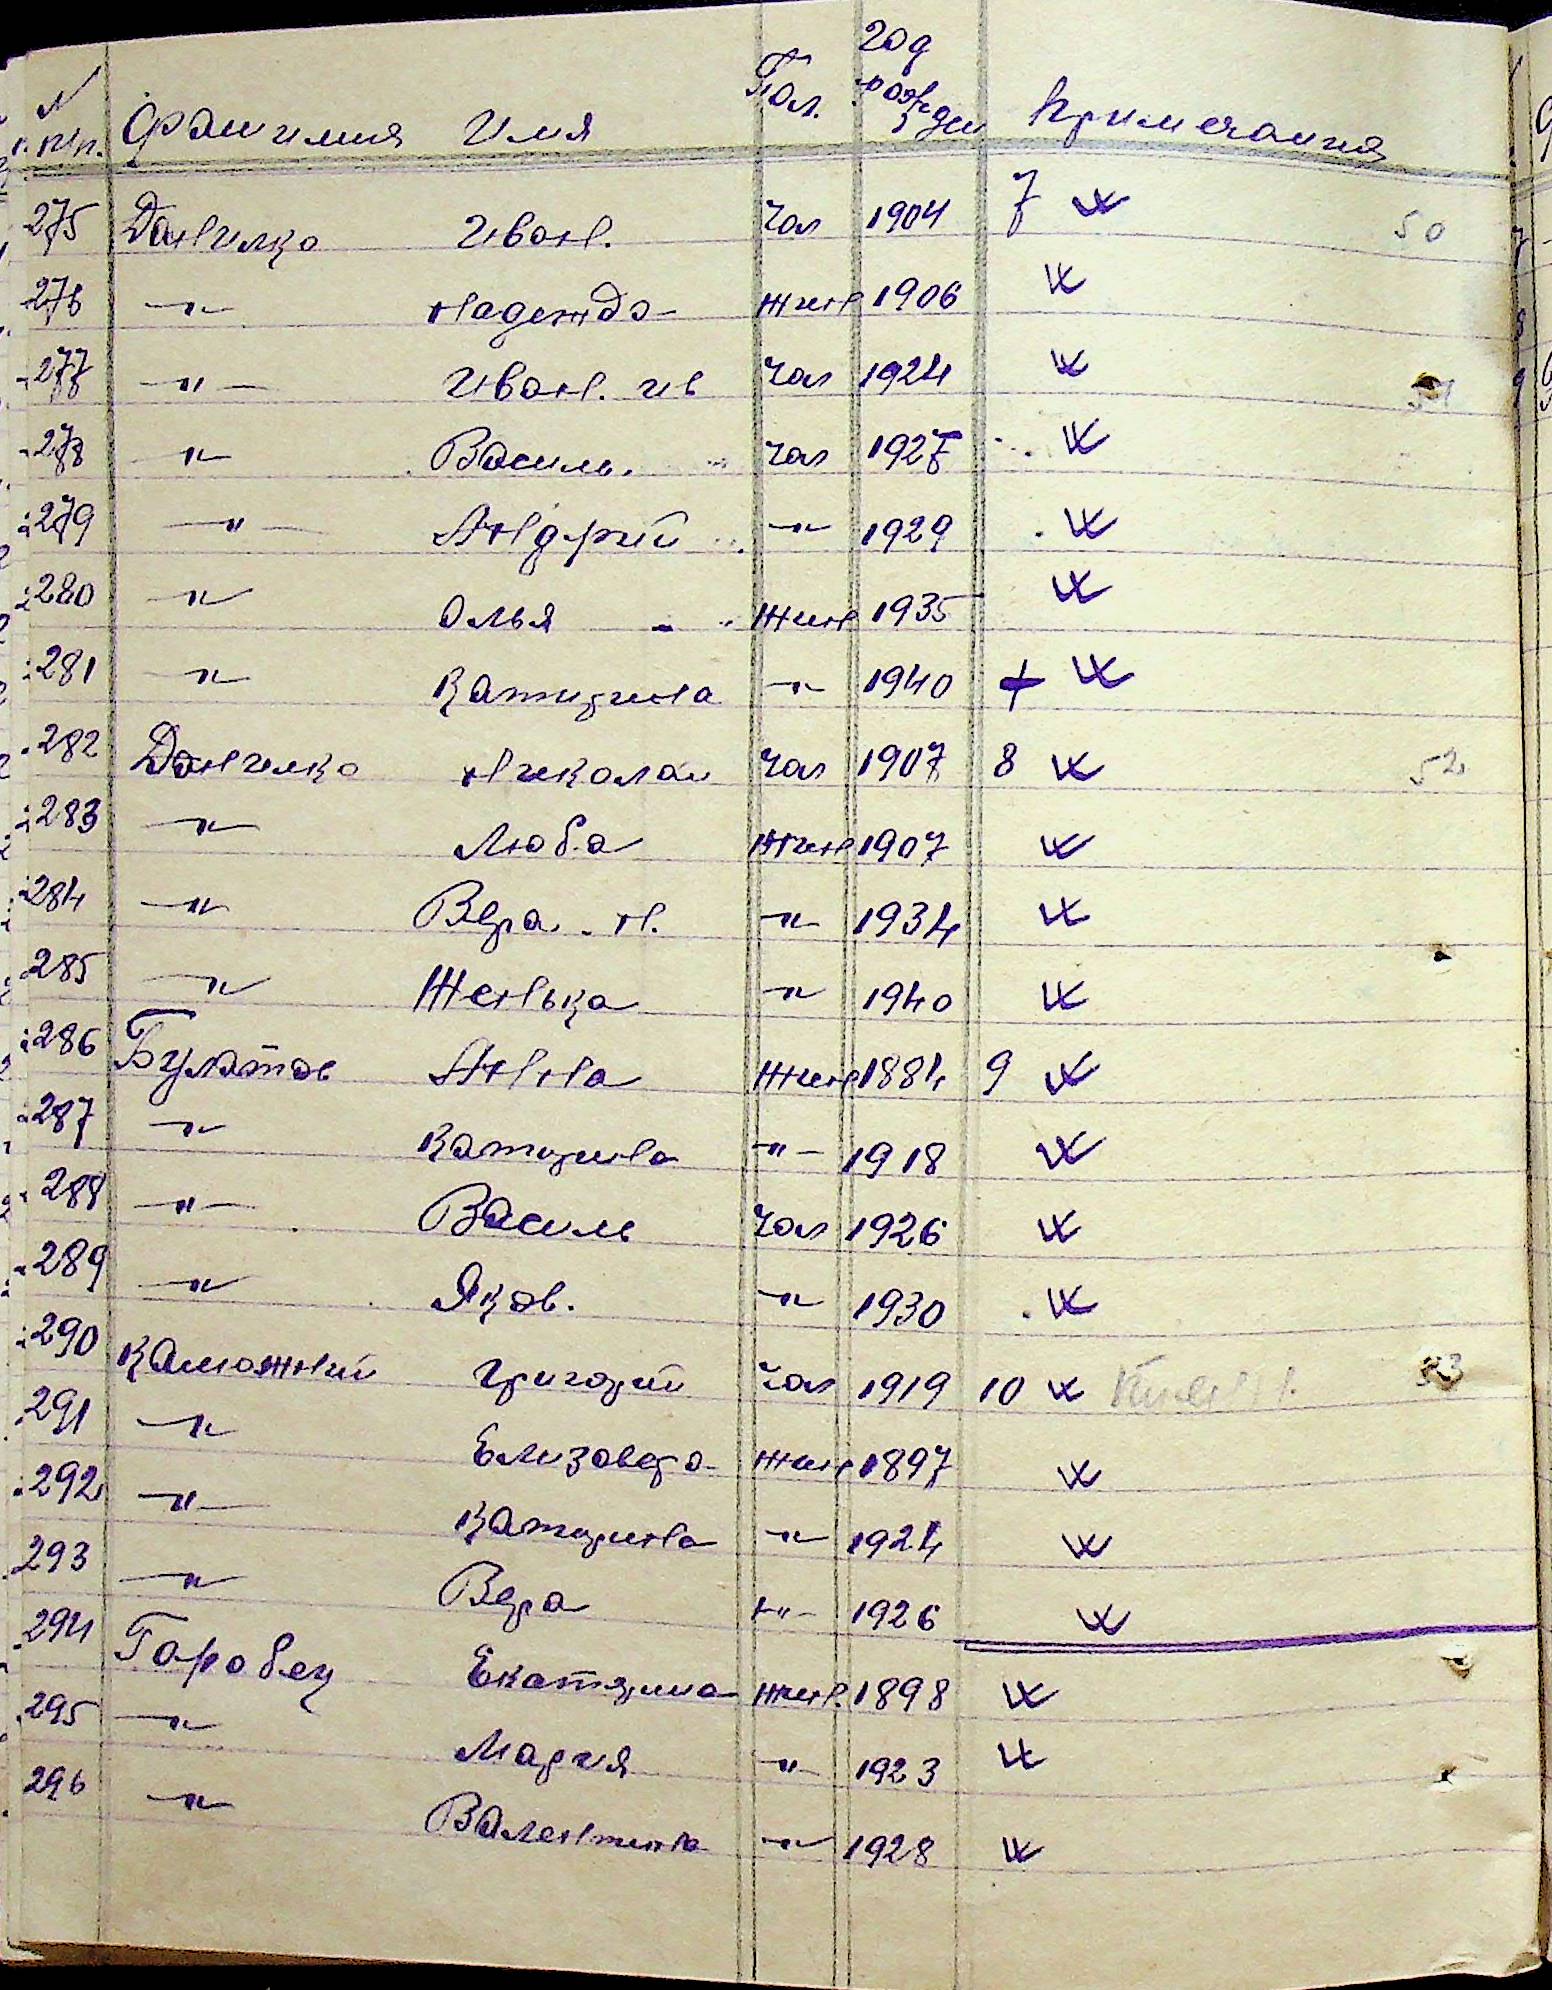 N п/п. Фамилия Имя Пол. Год рожден Примечания
275 Данилко Иван. Чол 1904 7 50
276 —"— Надежда Жин 1906
277 —"— Иван. Ив Чол 1924 51
278 —"— Василь. Чол 1927
279 —"— Андрий —"— 1929
280 —"— Олья Жин 1935
281 —"— Катирина —"— 1940 +
282 Данилко Николай Чол 1907 8 52
283 —"— Люба Жин 1907
284 —"— Вера. Н. —"— 1934
285 —"— Женька —"— 1940
286 Булатов Анна Жин 1884 9
287 —"— Катирина —"— 1918
288 —"— Василь Чол 1926
289 —"— Яков. —"— 1930
290 Калюжний Григорий Чол 1919 10 53
291 —"— Елизавера Жин 1897
292 —"— Катирина —"— 1924
293 —"— Вера —"— 1926
294 Горобец Екатярина Жин. 1898
295 —"— Мария —"— 1923
296 —"— Валентина —"— 1928